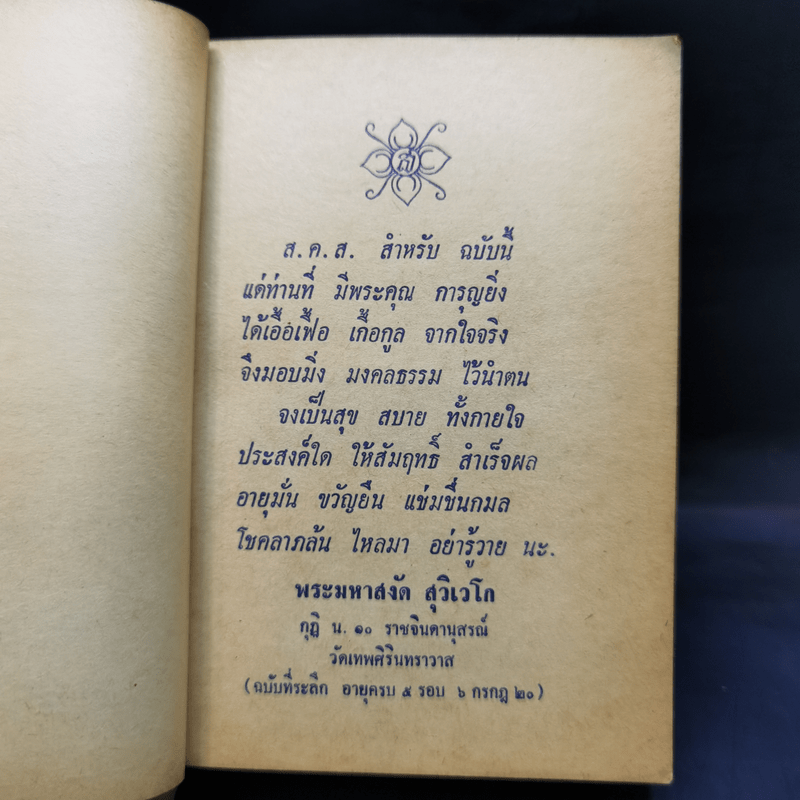 ส
ส.ค.ส. สำหรับ ฉบับนี้
แด่ท่านที่ มีพระคุณ การุญยิ่ง
ได้เอื้อเฟื้อ เกื้อกูล จากใจจริง
จึงมอบมิ่ง มงคลธรรม ไว้นำตน
จงเป็นสุข สบาย ทั้งกายใจ
ประสงค์ใด ให้สัมฤทธิ์ สำเร็จผล
อายุมั่น ขวัญยืน แช่มชื่นกมล
โชคลาภล้น ไหลมา อย่ารู้วาย นะ.
พระมหาสงัด สุวิเวโก
กุฏิ น. ๑๐ ราชจินดานุสรณ์
วัดเทพศิรินทราวาส
(ฉบับที่ระลึก อายุครบ ๕ รอบ ๖ กรกฎ ๒๐)